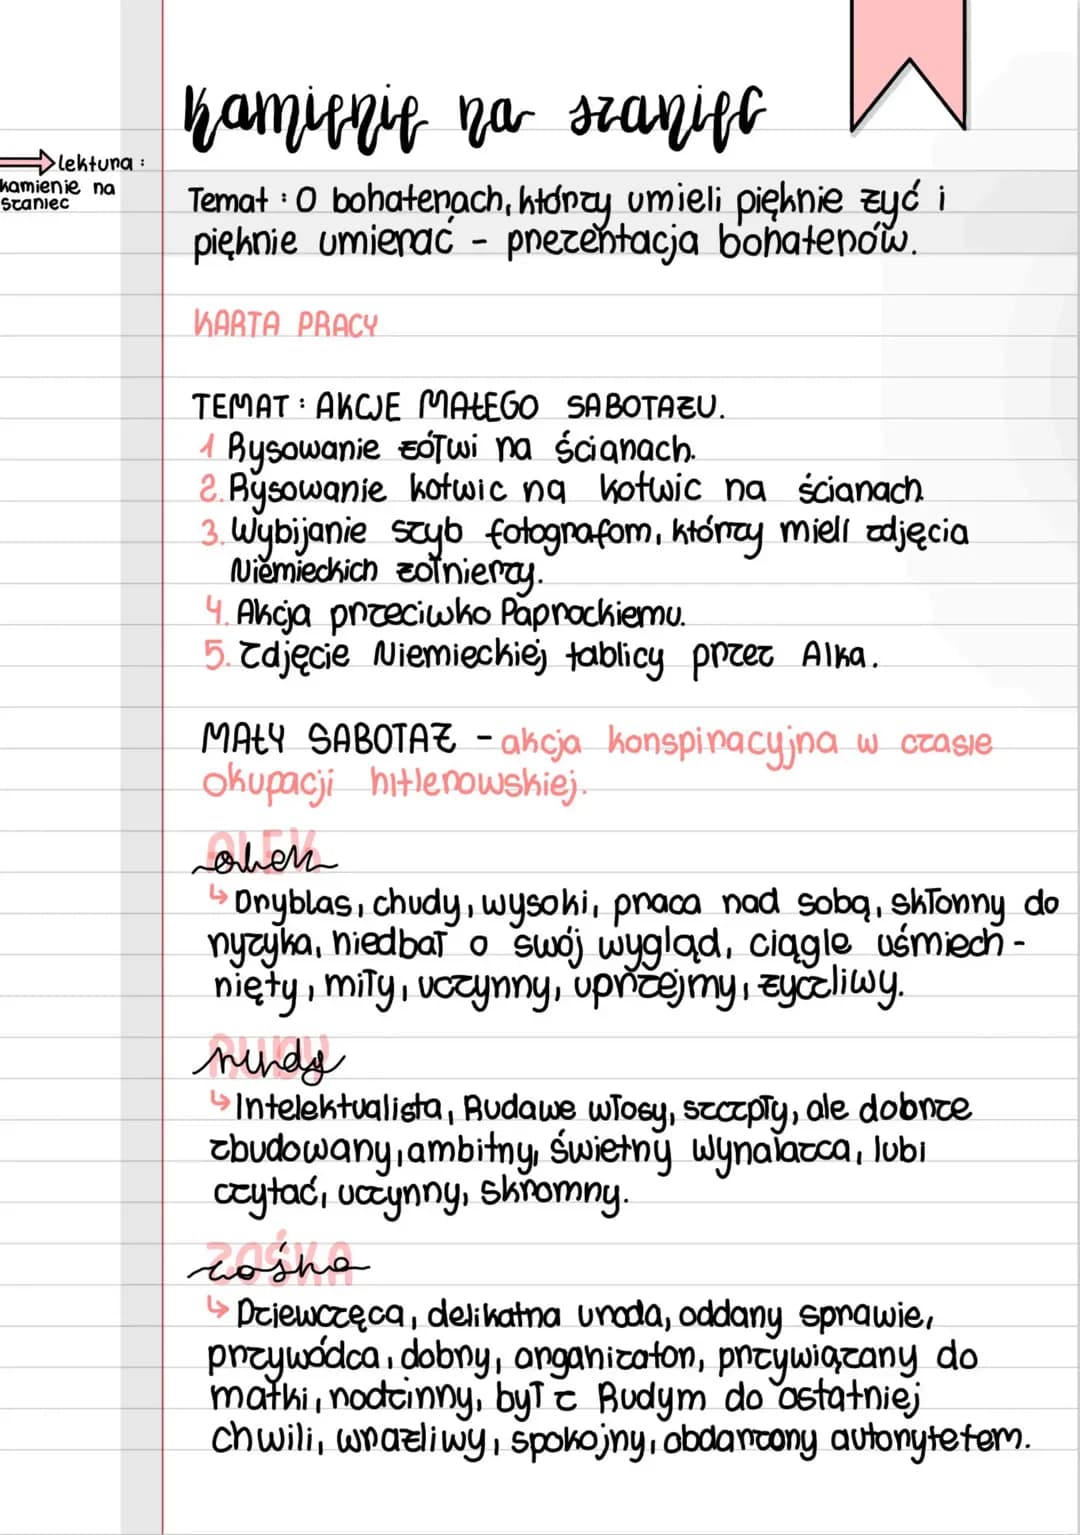 Kamienie na szaniec
lektura:
kamienie na
szaniec
Temat: O bohaterach, którzy umieli pięknie żyć i
pięknie umierać - prezentacja bohaterów.
KARTA PRACY
TEMAT: AKCJE MAŁEGO SABOTAŻU.
1 Rysowanie żółwi na ścianach.
2. Rysowanie kotwic na kotwic na ścianach
3. Wybijanie szyb fotografom, którzy mieli zdjęcia
Niemieckich żołnierzy.
4. Akcja przeciwko Paprockiemu.
5. Zdjęcie Niemieckiej tablicy przez Alka.
MAŁY SABOTAŻ - akcja konspiracyjna w czasie
okupacji hitlerowskiej.
ALEK
alek
↳ Dryblas, chudy, wysoki, praca nad sobą, skłonny do
ryzyka, niedbał o swój wygląd, ciągle uśmiech-
nięty, miły, uczynny, uprzejmy, życzliwy.
RUDY
rudy
↳ Intelektualista, Rudawe włosy, szczpły, ale dobrze
zbudowany, ambitny, świetny wynalazca, lubi
czytać, uczynny, skromny.
ZOŚKA
zośka
↳ Dziewczęca, delikatna uroda, oddany sprawie,
przywódca, dobry, organizator, przywiązany do
matki, rodzinny, był z Rudym do ostatniej
chwili, wrażliwy, spokojny, obdarzony autorytetem.